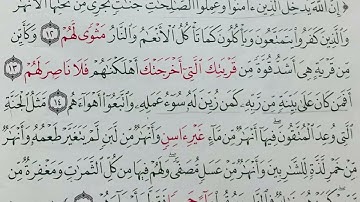 ﴿ إِنَّ ٱللَّهَ يُدْخِلُ ٱلَّذِينَ ءَامَنُوا۟ وَعَمِلُوا۟ ٱلصَّـٰلِحَـٰتِ جَنَّـٰتٍ تَجْرِى مِن تَحْتِهَا ٱلْأَنْهَـٰرُ
وَٱلَّذِينَ كَفَرُوا۟ يَتَمَتَّعُونَ وَيَأْكُلُونَ كَمَا تَأْكُلُ ٱلْأَنْعَـٰمُ وَٱلنَّارُ مَثْوًى لَّهُمْ ١٢ وَكَأَيِّن
مِّن قَرْيَةٍ هِىَ أَشَدُّ قُوَّةً مِّن قَرْيَتِكَ ٱلَّتِىٓ أَخْرَجَتْكَ أَهْلَكْنَـٰهُمْ فَلَا نَاصِرَ لَهُمْ ١٣
أَفَمَن كَانَ عَلَىٰ بَيِّنَةٍ مِّن رَّبِّهِۦ كَمَن زُيِّنَ لَهُۥ سُوٓءُ عَمَلِهِۦ وَٱتَّبَعُوٓا۟ أَهْوَآءَهُم ١٤ مَّثَلُ ٱلْجَنَّةِ
ٱلَّتِى وُعِدَ ٱلْمُتَّقُونَ فِيهَآ أَنْهَـٰرٌ مِّن مَّآءٍ غَيْرِ ءَاسِنٍ وَأَنْهَـٰرٌ مِّن لَّبَنٍ لَّمْ يَتَغَيَّرْ طَعْمُهُۥ وَأَنْهَـٰرٌ
مِّنْ خَمْرٍ لَّذَّةٍ لِّلشَّـٰرِبِينَ وَأَنْهَـٰرٌ مِّنْ عَسَلٍ مُّصَفًّى وَلَهُمْ فِيهَا مِن كُلِّ ٱلثَّمَرَٰتِ وَمَغْفِرَةٌ مِّن